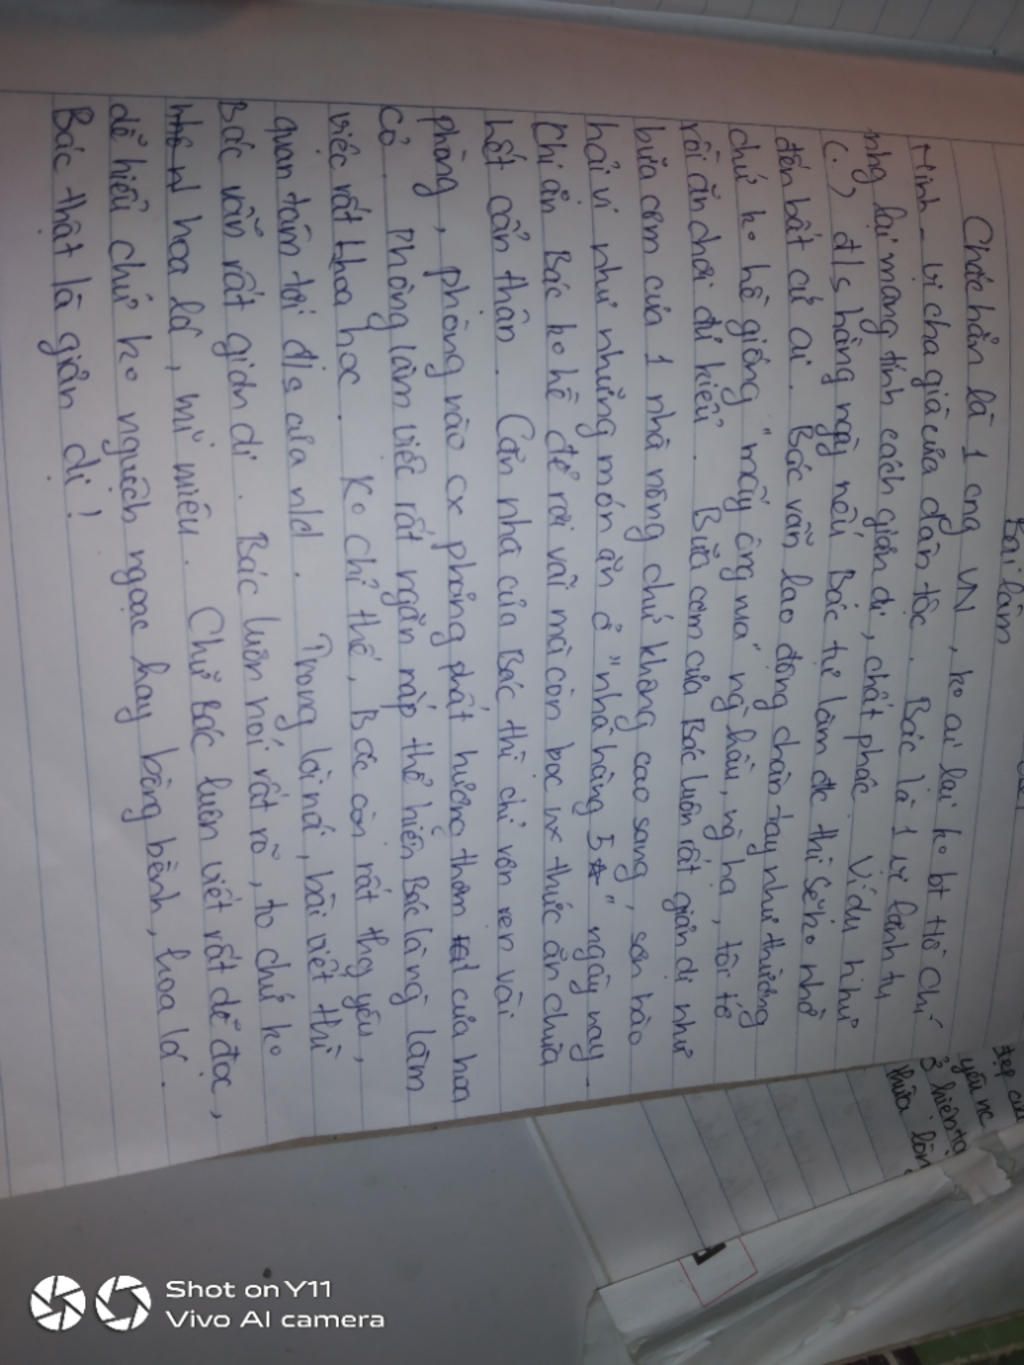 Bài làm
Chắc hẳn là 1 cng VN, ko ai lại ko bt Hồ Chí
Minh - vị cha già của dân tộc. Bác là 1 vị lãnh tụ
nhg lại mang tính cách giản dị, chất phác. Ví dụ như
(.) đ/s hằng ngày nếu Bác tự làm đc thì sẽ ko nhờ
đến bất cứ ai. Bác vẫn lao động chân tay như thường
chứ ko hề giống "mấy ông vua" ng hầu, ng hạ, tối tớ
rồi ăn chơi đủ kiểu. Bữa cơm của Bác luôn rất giản dị như
bữa cơm của 1 nhà nông chứ không cao sang, sơn hào
hải vị như những món ăn ở "nhà hàng 5☆" ngày nay.
Khi ăn Bác ko hề để rơi vãi mà còn bọc thức ăn chưa
hết cẩn thận. Căn nhà của Bác thì chỉ vỏn vẹn vài
phòng, phòng nào cx phảng phất hương thơm của hoa
cỏ. Phòng làm việc rất ngăn nắp thể hiện Bác là ng làm
việc rất khoa học. Ko chỉ thế, Bác còn rất thg yêu,
quan tâm tới đ/s của nld. Trong lời nói, bài viết thì
Bác vẫn rất giản dị. Bác luôn nói rất rõ, to chứ ko
hoa lá, mĩ miều. Chữ Bác luôn viết rất dễ đọc,
dễ hiểu chứ ko nguệch ngoạc hay bồng bềnh, hoa lá.
Bác thật là giản dị!
đẹp
yêu nc
ở hiện tạ
thừa